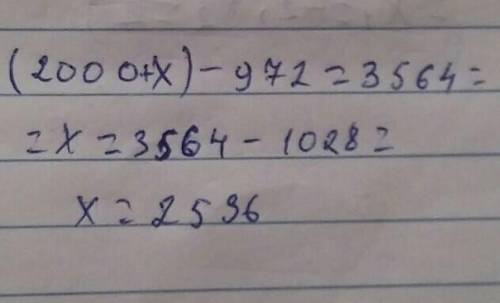 (2000+x)-972=3564=
=x=3564-1028=
x=2536